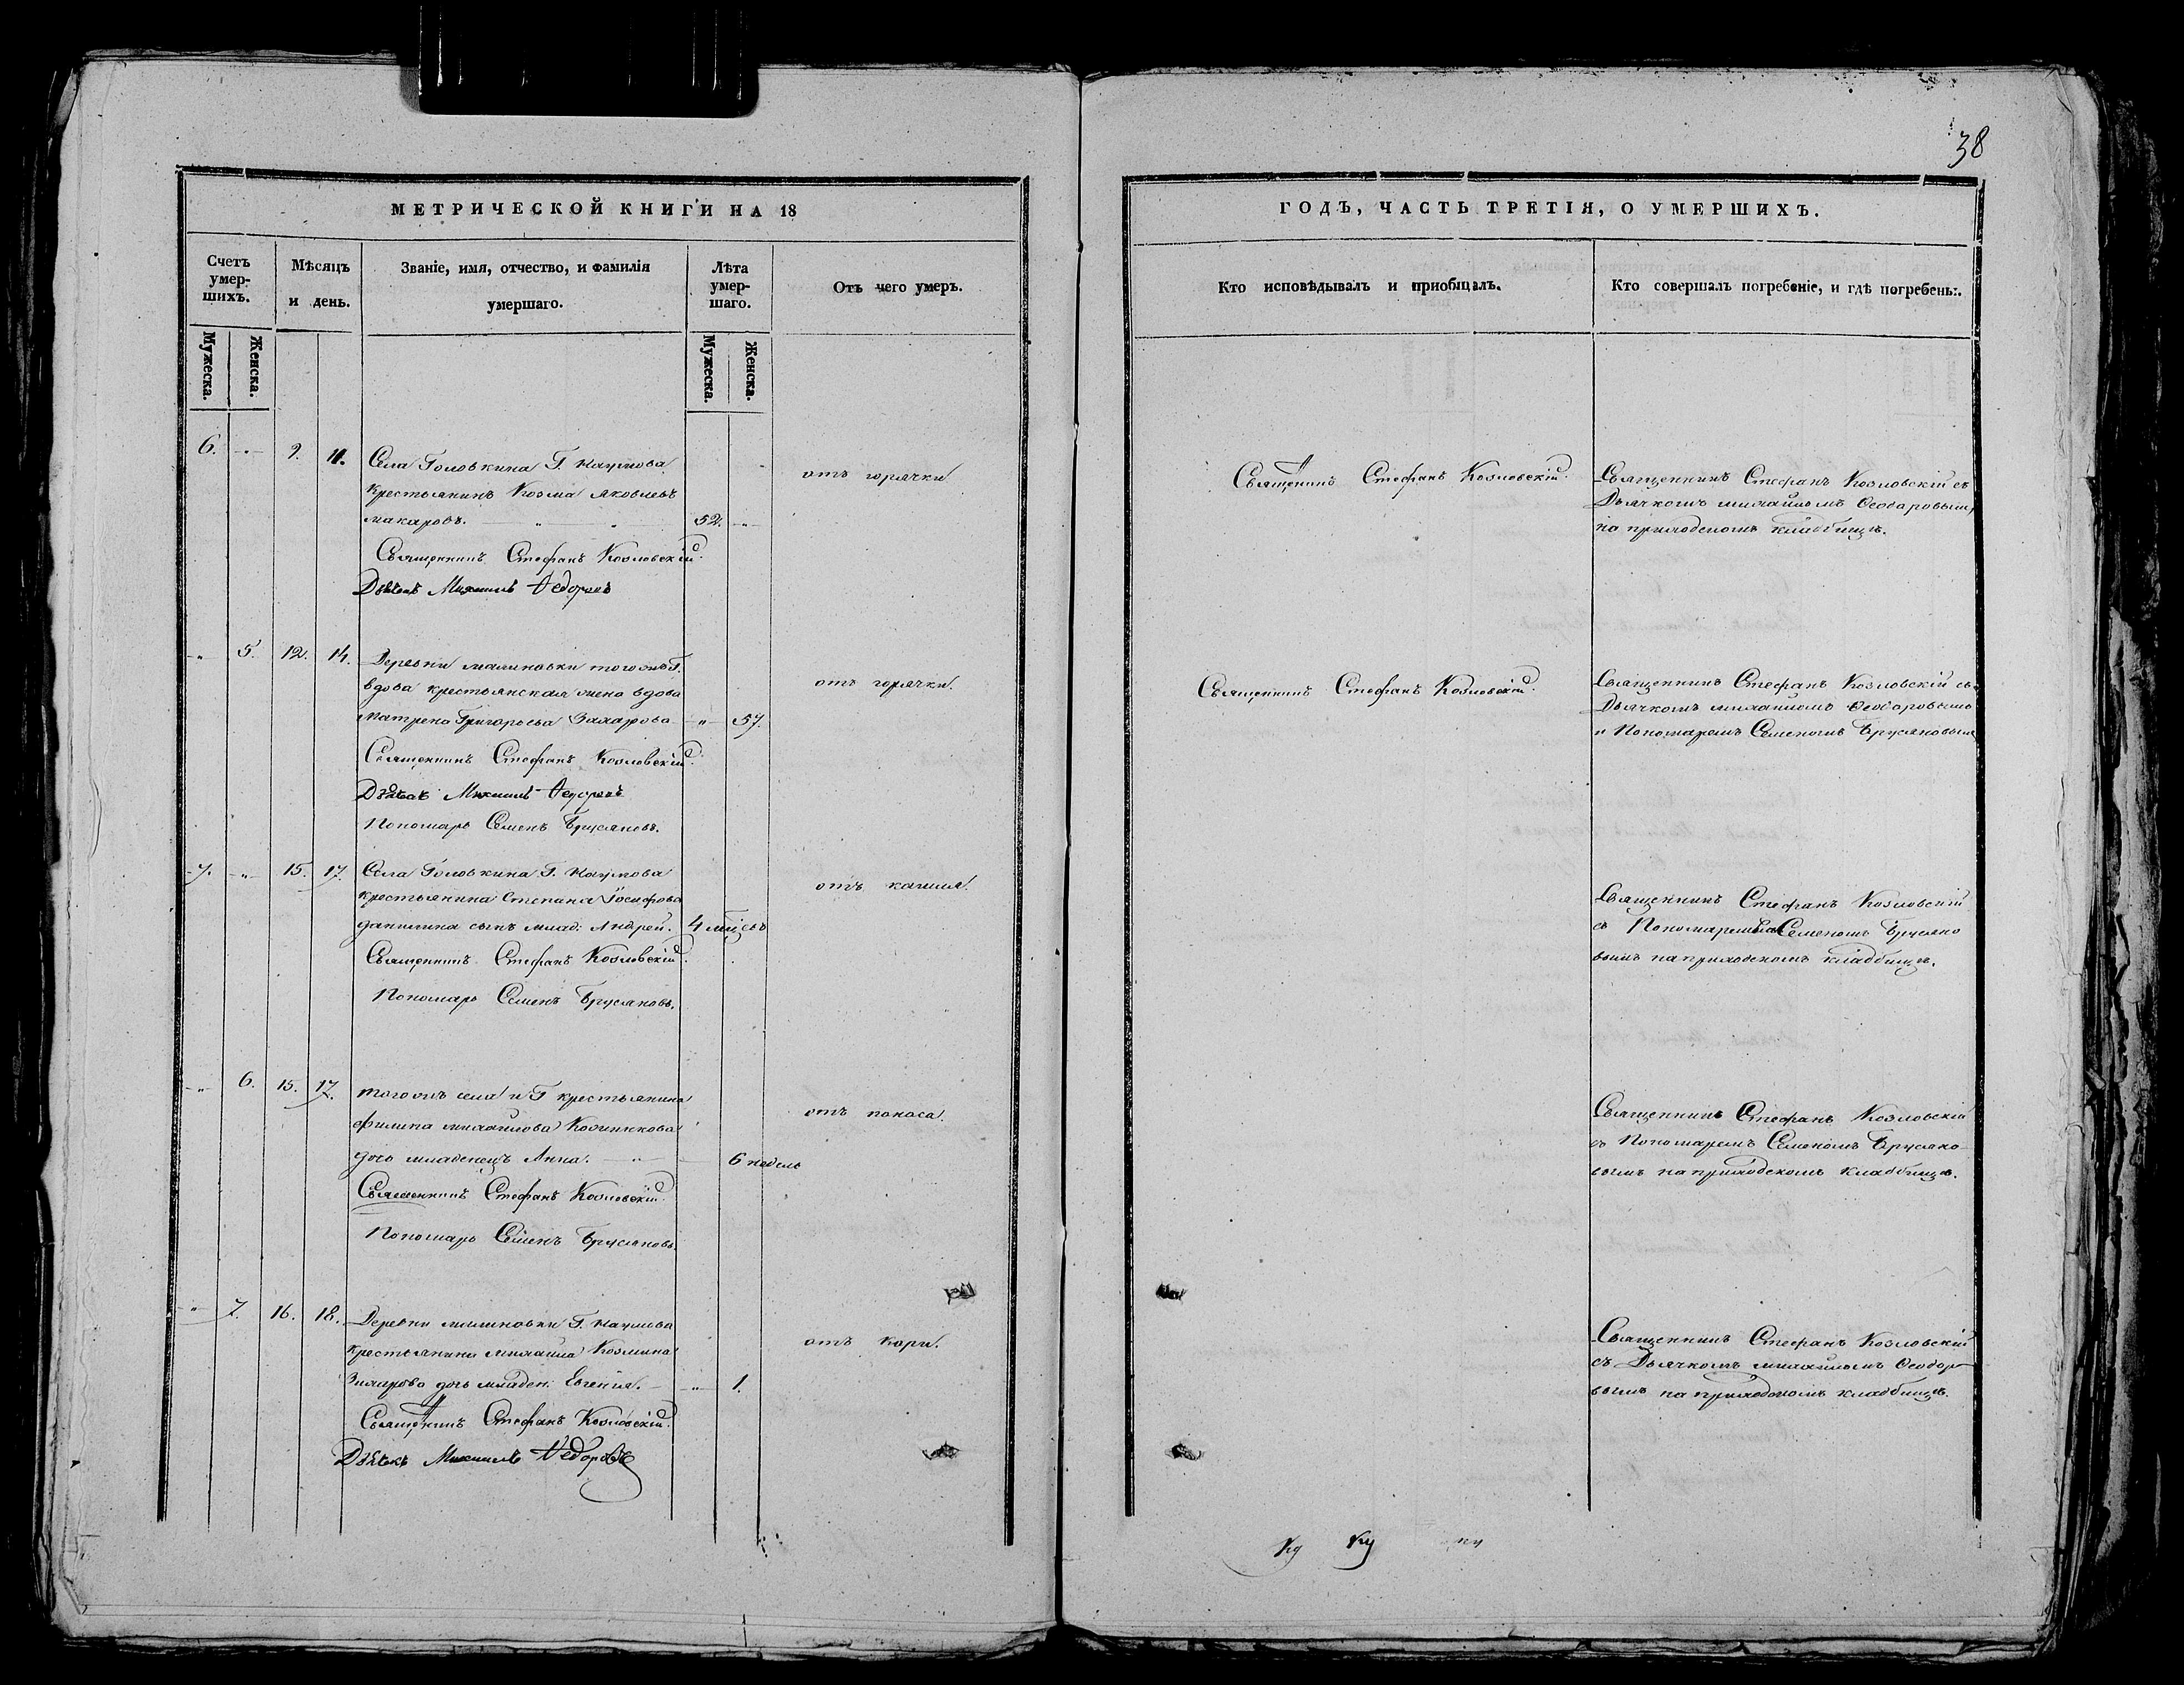 38
МЕТРИЧЕСКОЙ КНИГИ НА 18
Счетъ умер-шихъ.
Мѣсяцъ и день.
Званіе, имя, отчество, и фамилія умершаго.
Лѣта умер-шаго.
Отъ чего умеръ.
Мужеска.
Женска.
Мужеска.
Женска.
6. -"- 9. 11. Села Головкина Г. Наумова
отъ горячки
крестьянинъ Козма Яковлевъ
Макаровъ. 52. -"-
Священникъ Стефанъ Козловскій.
Дьячекъ Михаилъ Ѳедоровъ
-"- 5. 12. 14. Деревни Малиновки того жъ Г.
вдова крестьянская жена вдова
отъ горячки.
Матрена Григорьева Захарова -"- 57.
Священникъ Стефанъ Козловскій.
Дьячекъ Михаилъ Ѳедоровъ
Пономарь Семенъ Брусяновъ.
7. -"- 15. 17. Села Головкина Г. Наумова
отъ кашля.
крестьянина Степана Іосифова
Данилина сынъ млад: Андрей. 4 мѣсць
Священникъ Стефанъ Козловскій.
Пономарь Семенъ Брусяновъ.
-"- 6. 15. 17. Тогожъ села и Г крестьянина
отъ поноса.
Филипа Михайлова
дочь младенецъ Анна. -"- 6 недель
Священникъ Стефанъ Козловскій.
Пономарь Семенъ Брусяновъ.
-"- 7. 16. 18. Деревни Малиновки Г. Наумова
отъ кори.
крестьянина Михайла Козмина
дочь младен: Евгенія. -"- 1.
Священникъ Стефанъ Козловскій.
Дьячекъ Михаилъ Ѳедоровъ
ГОДЪ, ЧАСТЬ ТРЕТІЯ, О УМЕРШИХЪ.
Кто исповѣдывалъ и пріобщалъ.
Кто совершалъ погребеніе, и гдѣ погребены.
Священникъ Стефанъ Козловскій.
Священникъ Стефанъ Козловскій съ
Дьячкомъ Михайломъ Ѳеодоровымъ
на приходскомъ кладбищѣ.
Священникъ Стефанъ Козловскій.
Священникъ Стефанъ Козловскій съ
Дьячкомъ Михайломъ Ѳеодоровымъ
и Пономаремъ Семеномъ Брусяновымъ
Священникъ Стефанъ Козловскій
съ Пономаремъ Семеномъ Брусяно
вымъ на приходскомъ кладбищѣ.
Священникъ Стефанъ Козловскій
съ Пономаремъ Семеномъ Брусяно-
вымъ на приходскомъ кладбищѣ.
Священникъ Стефанъ Козловскій
съ Дьячкомъ Михайломъ Ѳеодор
вымъ на приходскомъ кладбищѣ.